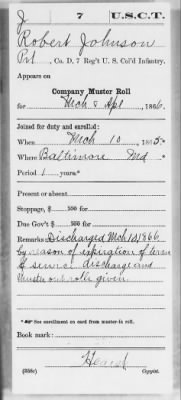 J 7 U.S.C.T.
Robert Johnson
Pvt, Co. D, 7 Reg't U. S. Col'd Infantry.
Appears on
Company Muster Roll
for Mch & Apl, 1866.
Joined for duty and enrolled:
When Mch 10, 1865.
Where Baltimore Md
Period 1 years.*
Present or absent
Stoppage, $ 100 for
Due Gov't $ 100 for
Remarks: Discharged Mch 10, 1866
by reason of expiration of term
of service discharge and
muster out rolls given.
* See enrollment on card from muster-in roll.
Book mark:
(358c) Copyist.